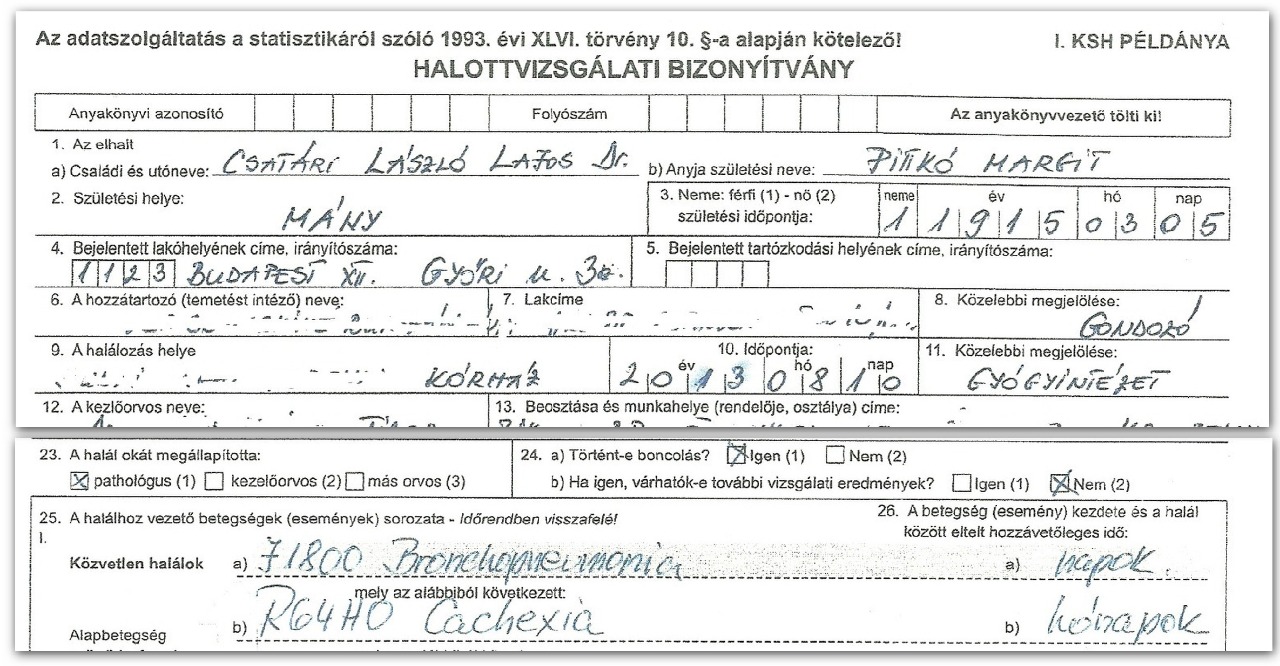 Az adatszolgáltatás a statisztikáról szóló 1993. évi XLVI. törvény 10. §-a alapján kötelező! I. KSH PÉLDÁNYA
HALOTTVIZSGÁLATI BIZONYÍTVÁNY
Anyakönyvi azonosító Folyószám Az anyakönyvvezető tölti ki!
1. Az elhalt
a) Családi és utóneve: CSATÁRI LÁSZLÓ LAJOS Dr. b) Anyja születési neve: PITIKÓ MARGIT
2. Születési helye: MÁNY
3. Neme: férfi (1) - nő (2) neme év hó nap
születési időpontja: 1 1915 03 05
4. Bejelentett lakóhelyének címe, irányítószáma: 5. Bejelentett tartózkodási helyének címe, irányítószáma:
1123 BUDAPEST XII. GYŐRI u.
6. A hozzátartozó (temetést intéző) neve: 7. Lakcíme 8. Közelebbi megjelölése:
GONDOZÓ
9. A halálozás helye 10. Időpontja: 11. Közelebbi megjelölése:
KÓRHÁZ év 2013 hó 08 nap 10 GYÓGYINTÉZET
12. A kezlőorvos neve: 13. Beosztása és munkahelye (rendelője, osztálya) címe:
23. A halál okát megállapította: 24. a) Történt-e boncolás? Igen (1) Nem (2)
pathológus (1) kezelőorvos (2) más orvos (3) b) Ha igen, várhatók-e további vizsgálati eredmények? Igen (1) Nem (2)
25. A halálhoz vezető betegségek (események) sorozata - Időrendben visszafelé! 26. A betegség (esemény) kezdete és a halál
I. között eltelt hozzávetőleges idő:
Közvetlen halálok a) J1800 Bronchopneumonia a) napok
mely az alábbiból következett:
Alapbetegség b) R64H0 Cachexia b) hónapok